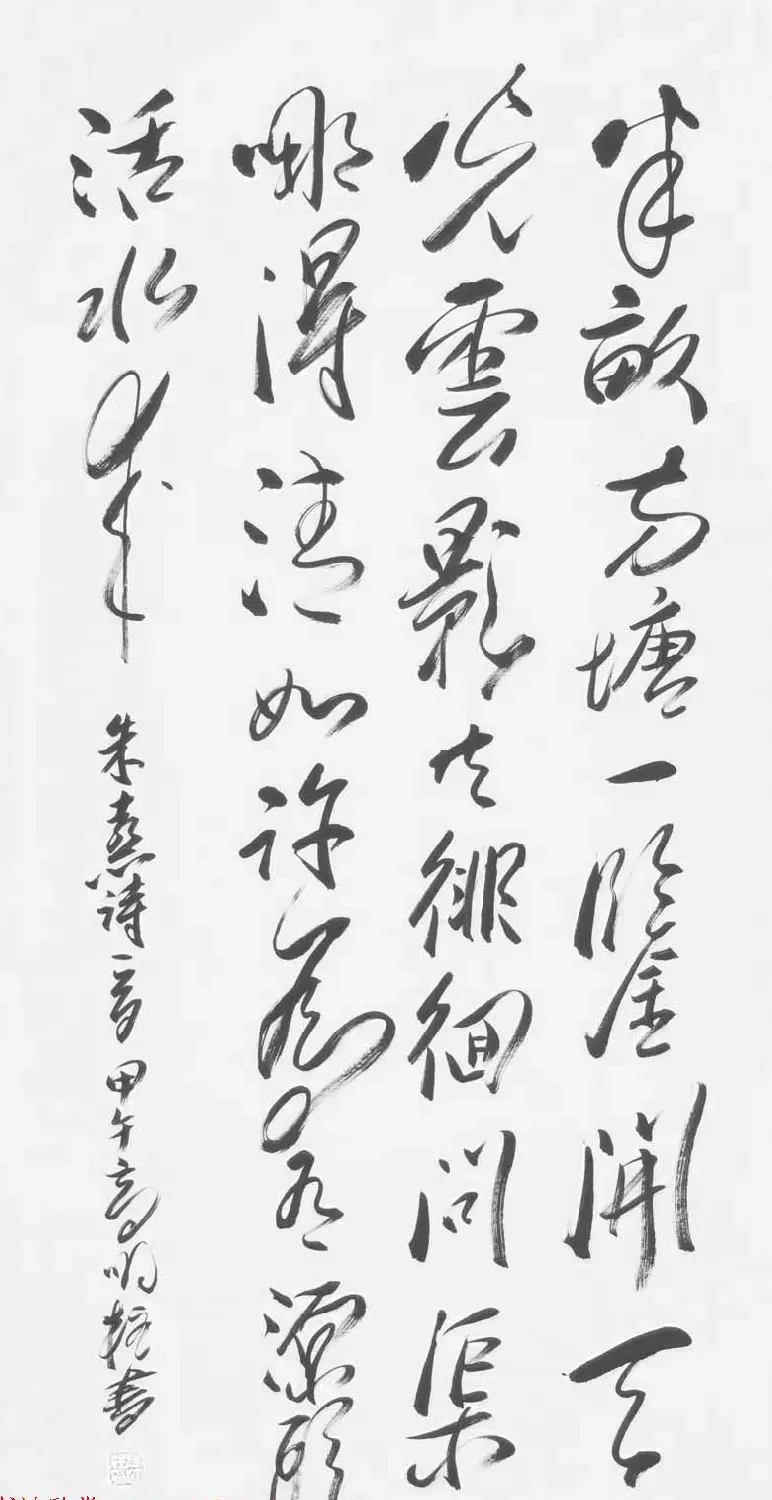 半畝方塘一鑒開天
光雲影共徘徊問渠
哪得清如許為有源頭
活水來
朱熹詩一首 甲午高明書